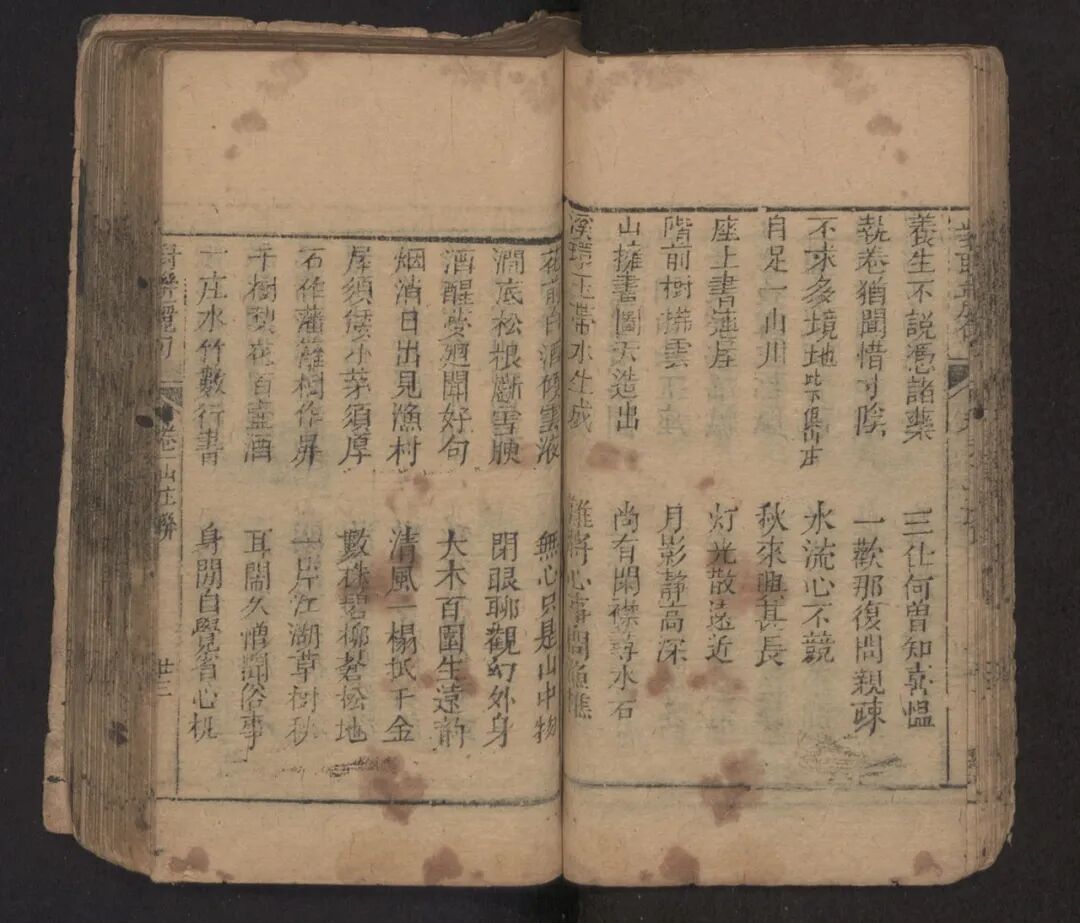 養生不說憑諸藥 三仕何曾知喜慍
執卷猶聞惜寸陰 一歡那復問親疎
不求多境地 此下俱山庄 水流心不競
自足一山川 秋來興甚長
座上書連屋 灯光散遠近
階前樹拂雲 月影静高深
山擁書圖天造出 尚有閑襟尋水石
溪環玉帶水生成 雖將心事問漁樵
花前白酒傾雲液 無心只是山中物
澗底松根斸雪腴 閉眼聊觀幻外身
酒醒夢廻聞好句 大木百圍生遠韵
烟消日出見漁村 清風一榻抵千金
屋須矮小茅須厚 數株碧柳蒼松地
石作藩籬樹作屏 一片江湖草樹秋
千樹梨花百壺酒 耳閙久憎聞俗事
一庄水竹數行書 身閒自覺省心机
卷一 山庄聯 廿三